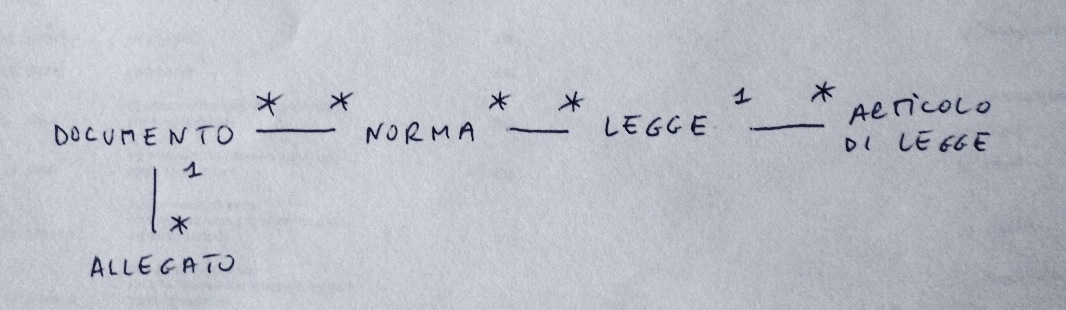 * * * * 1 *
DOCUMENTO NORMA LEGGE ARTICOLO
DI LEGGE
1
*
ALLEGATO